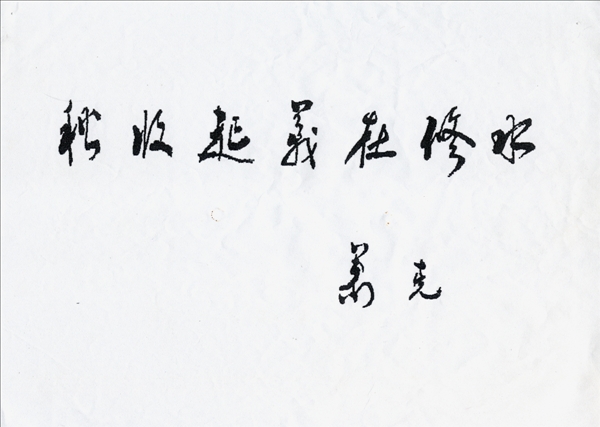 秋收起義在修水
萧克